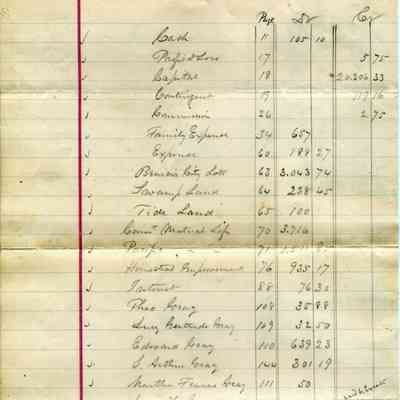 Page Dr Cr
Cash 11 105 10
Profit & Loss 17 5 75
Capital 18 20.206 33
Contingent 19 16
Commission 26 2 75
Family Expense 34 657
Expense 60 188 27
Benicia City Lots 63 3.043 74
Swamp Land 64 238 45
Tide Land 65 100
Conn Mutual Life 70 3.716
Pacific 71
Homestead Improvement 76 935 17
Interest 88 76 30
Theo Gray 108 35 88
Lucy Gertrude Gray 109 32 50
Edward Gray 110 639 23
S. Arthur Gray 144 301 19
Martha Gray 111 50